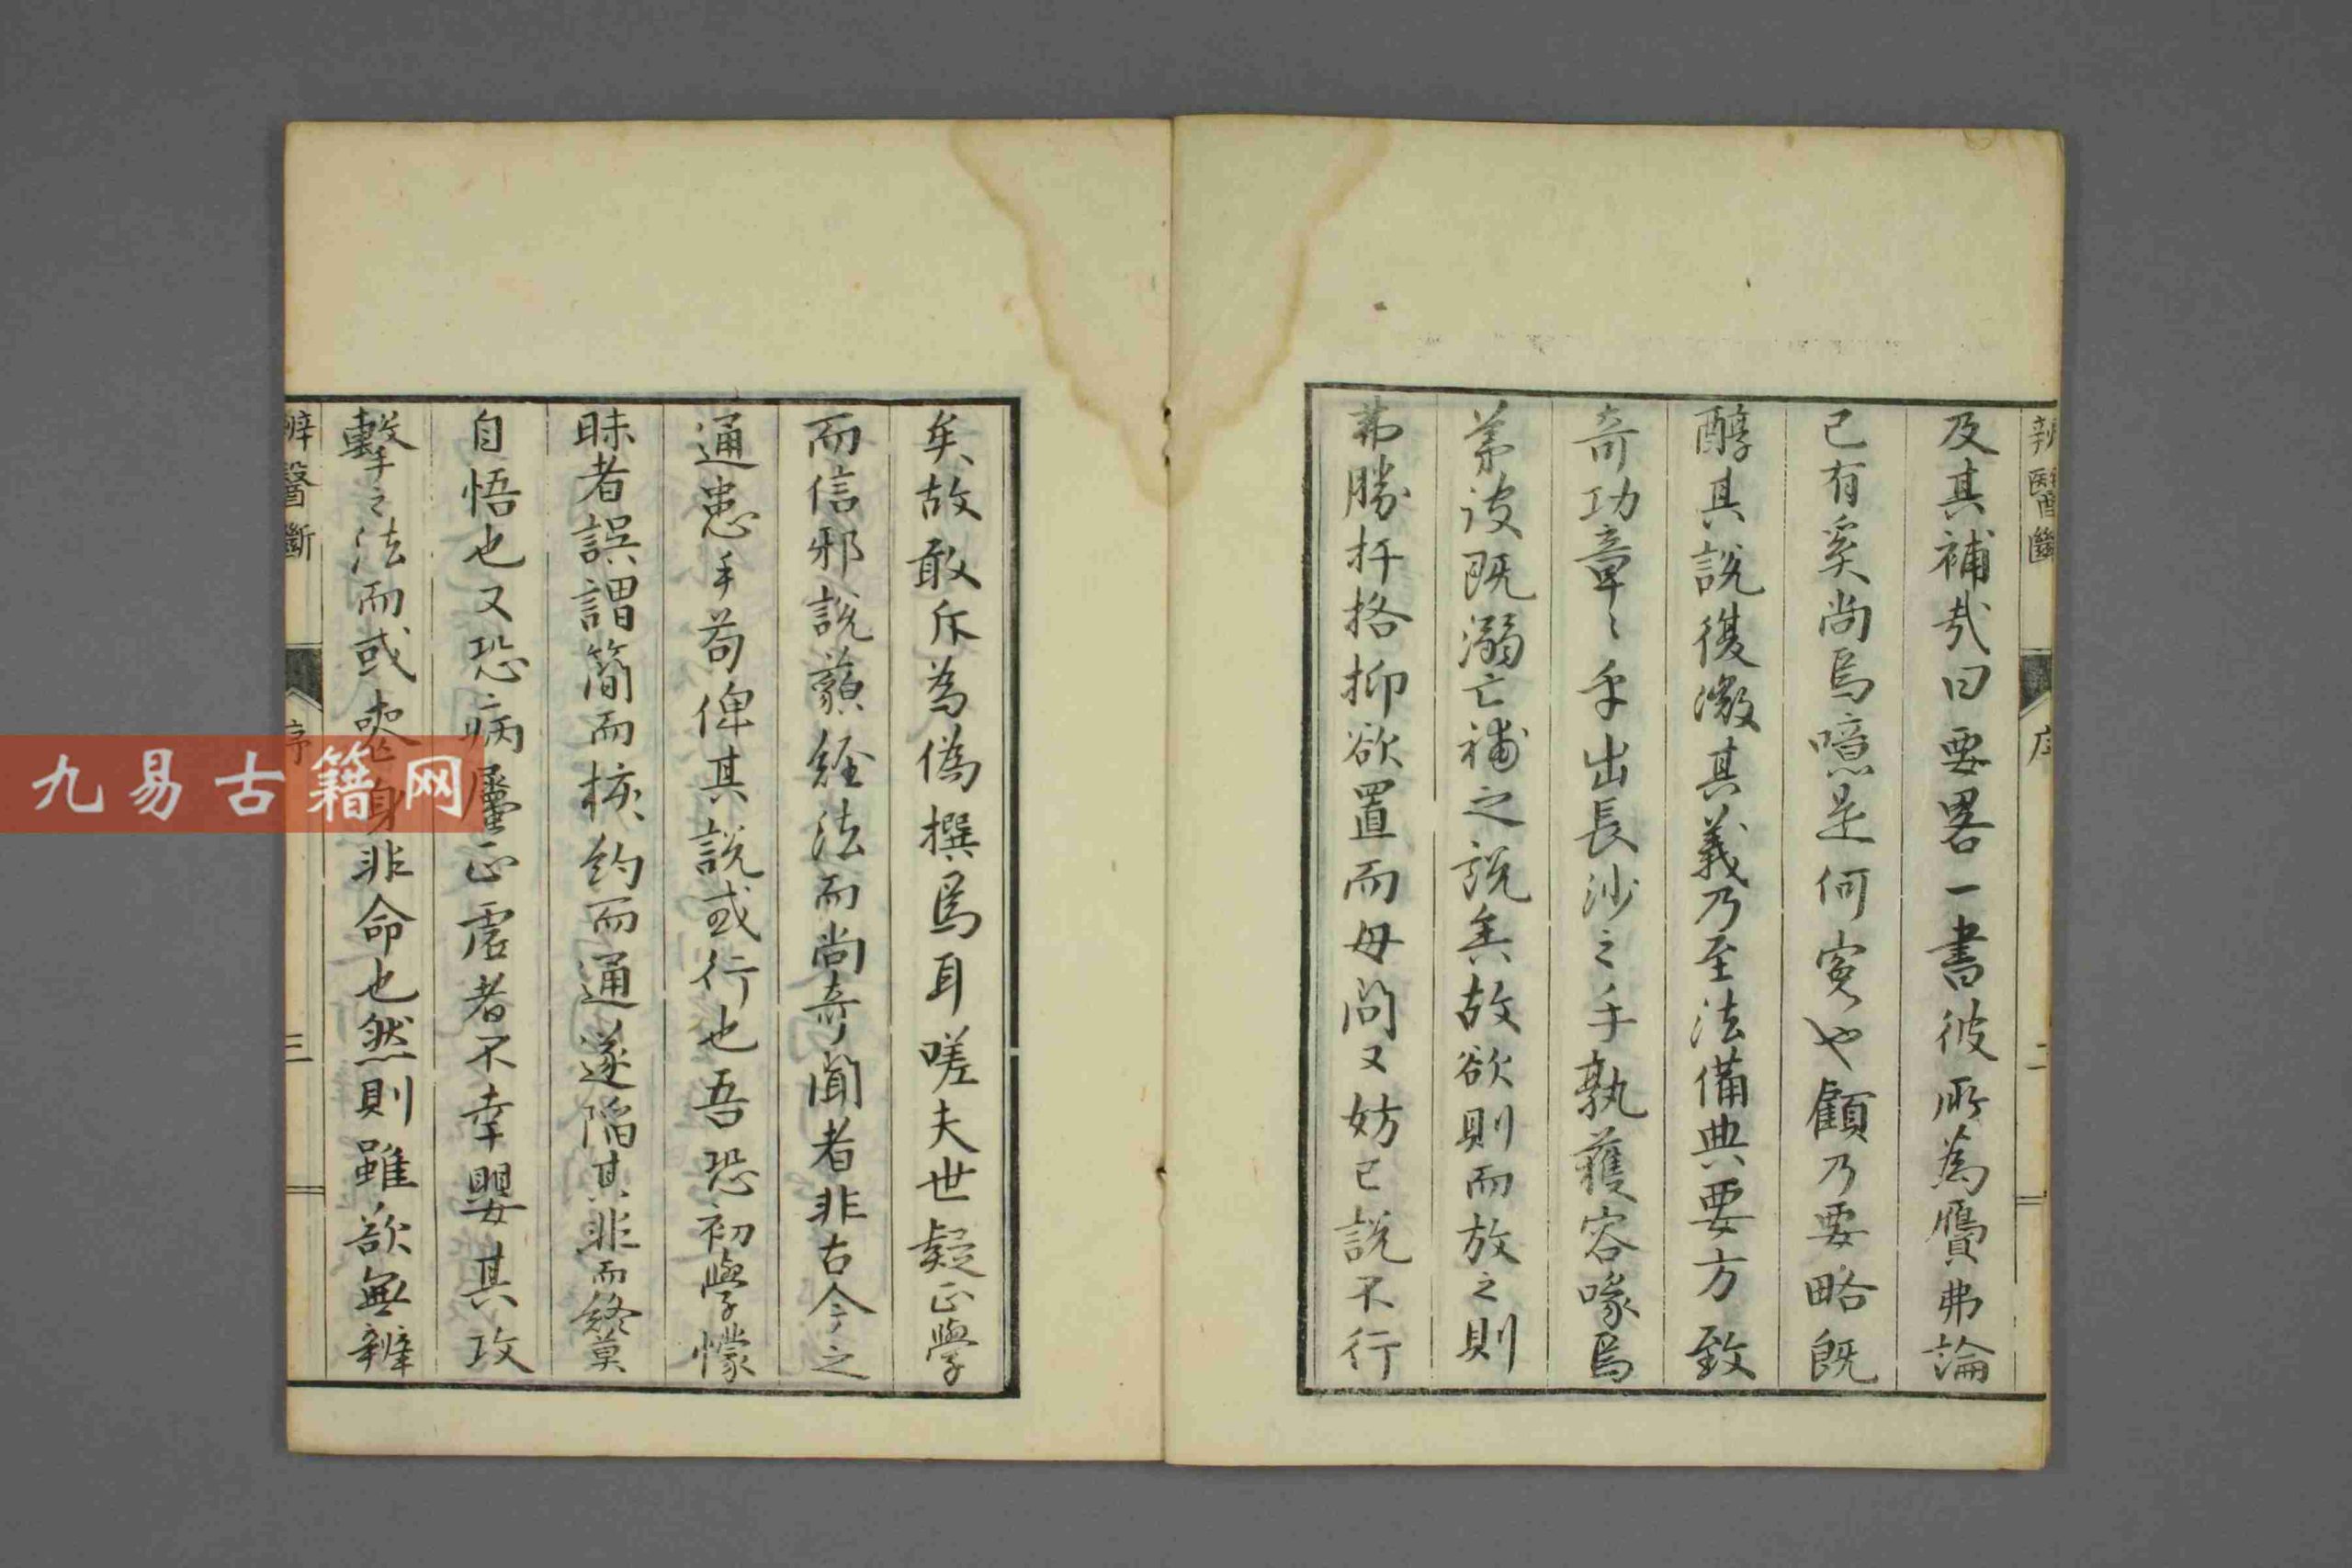 辨醫斷
序
二
及其補哉曰要畧一書彼所為贋弗論
已有奚尚焉噫是何寃也顧乃要略既
醇其說復激其義乃至法備典要方致
奇功章〻乎出長沙之手孰獲容喙焉
苐彼既溺亡補之說矣故欲則而放之則
弗勝扞格抑欲置而毋問又妨已說不行
矣故敢斥為偽撰焉耳嗟夫世疑正學
而信邪說藐經法而尚奇聞者非古今之
通患乎苟俾其說或行也吾恐初學懞
昧者誤謂簡而核約而通遂陷其非而終莫
自悟也又恐病屬正虛者不幸嬰其攻
擊之法而或喪身非命也然則雖欲無辨
辨醫斷
序
三
九易古籍网